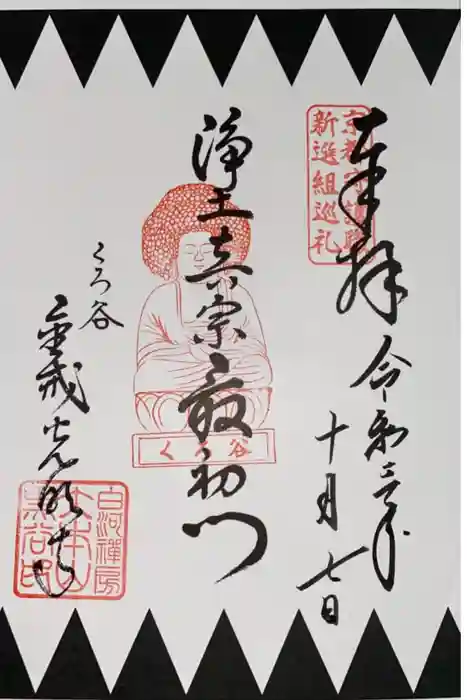 京都守護職
新選組巡礼
奉拝
令和三年
十月七日
浄土真宗最初門
くろ谷
くろ谷
金戒光明寺
白河禪房
大本山
黒谷印